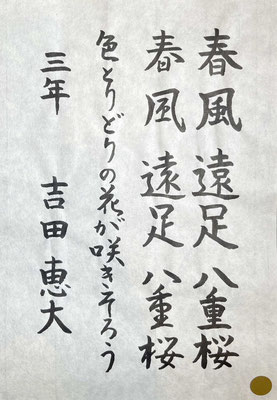 春風遠足八重桜
春風遠足八重桜
色とりどりの花が咲きそろう
三年 吉田恵大